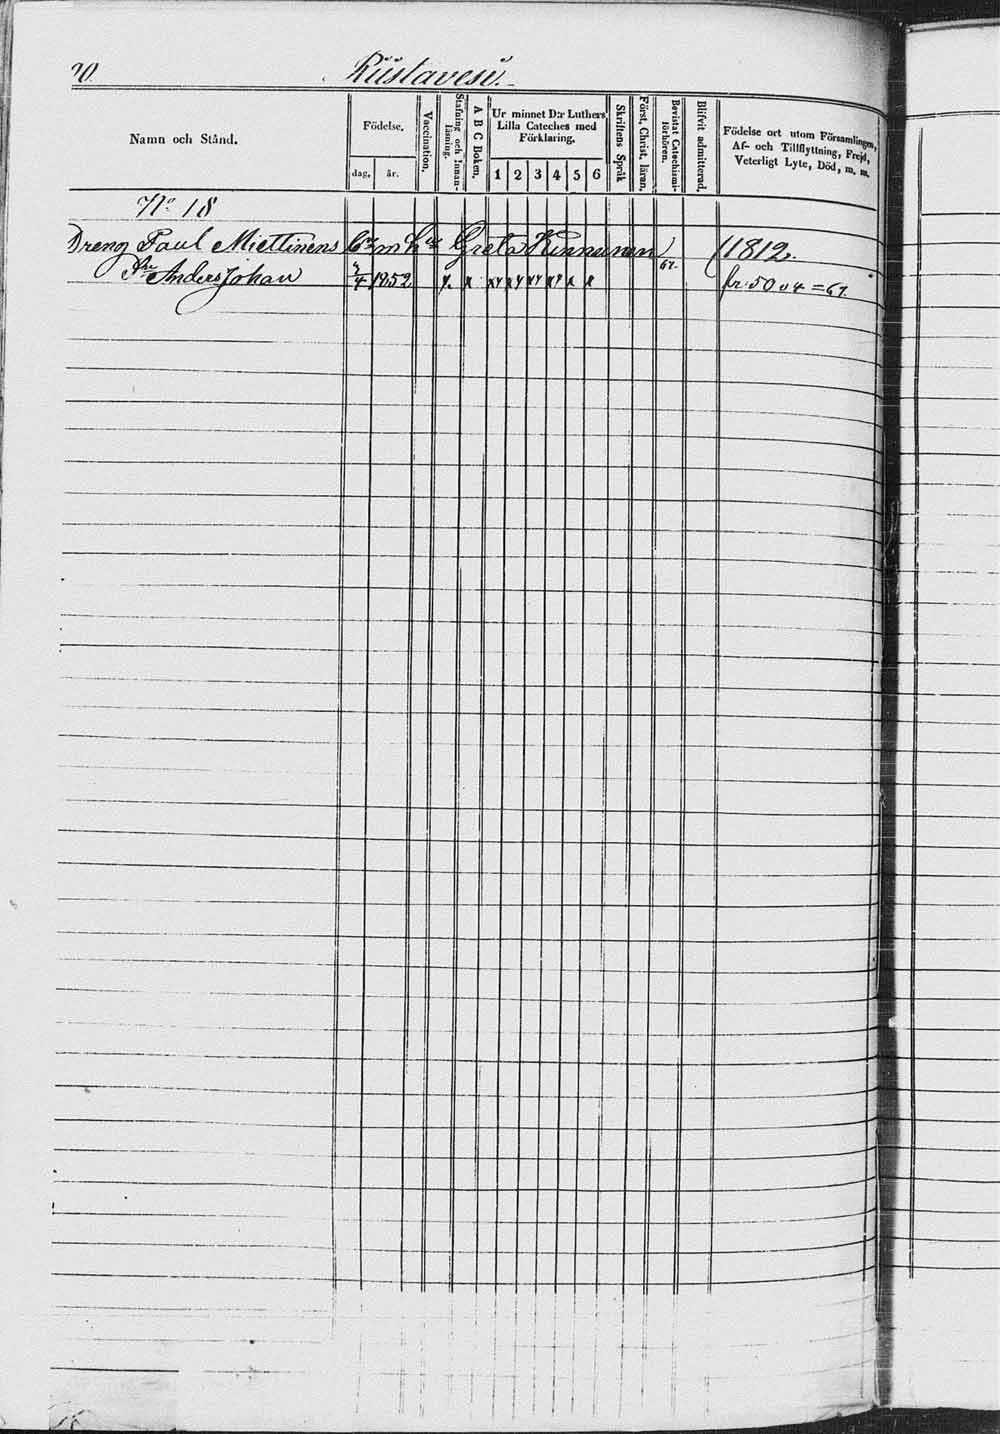 20.
Riistavesi.
Namn och Stånd.
Födelse.
dag.
år.
Vaccination.
Stafning och Innanläsning.
A B C Boken.
Ur minnet D:r Luthers
Lilla Cateches med
Förklaring.
1 2 3 4 5 6
Skriftens Språk
Först. Christ. läran.
Bevistat Catechismi-
förhören.
Blifvit admitterad.
Födelse ort utom Församlingen,
Af- och Tillflyttning, Frejd,
Veterligt Lyte, Död, m. m.
No 18
Dreng Paul Miettinens m Greta Kinnunen 1812.
Anders Johan 4 1852 61. fr. 50 v 4 = 61.